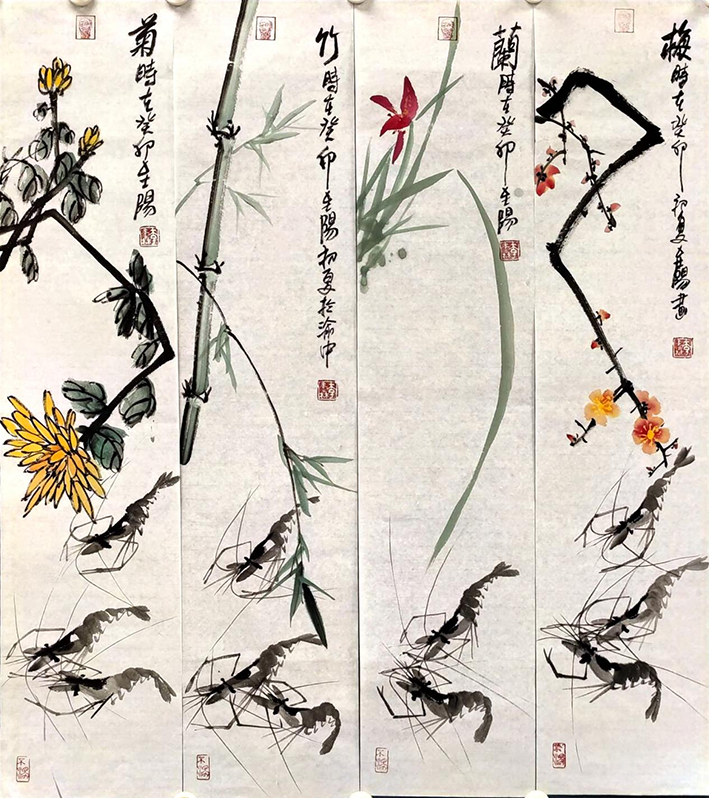 梅時在癸卯初夏陽畫
蘭時在癸卯陽
竹時在癸卯陽初夏於渝中
菊時在癸卯陽